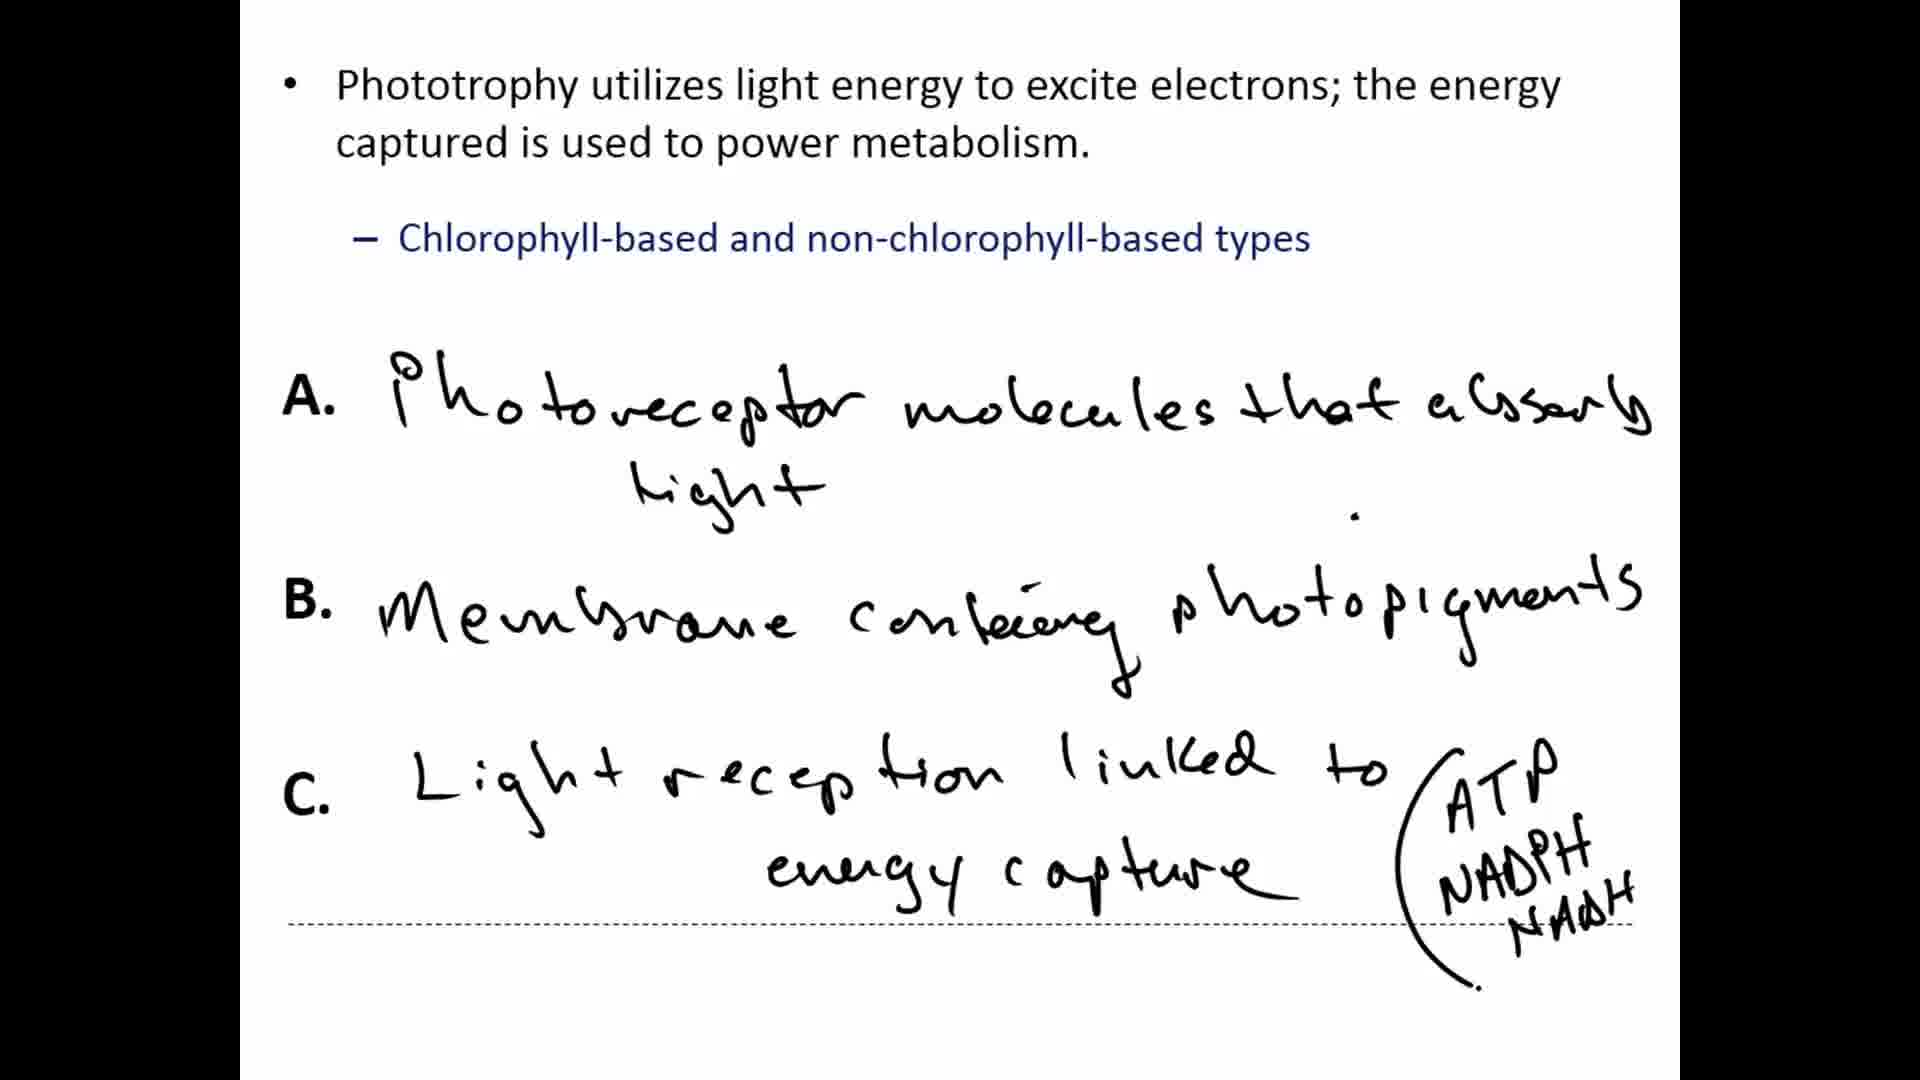 • Phototrophy utilizes light energy to excite electrons; the energy
captured is used to power metabolism.
– Chlorophyll-based and non-chlorophyll-based types
A. Photoreceptor molecules that absorb
light
B. Membrane containing photopigments
C. Light reception linked to
energy capture
(ATP
NADPH
NADH